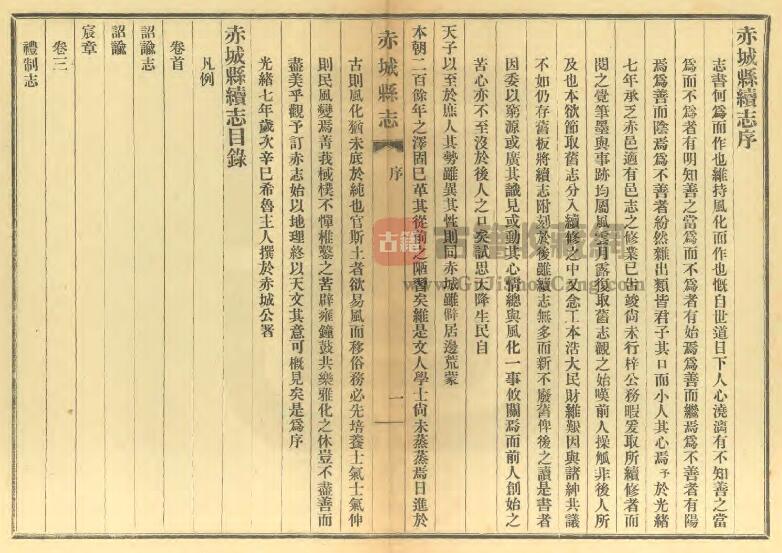 赤城縣續志序
志書何爲而作也維持風化而作也慨自世道日下人心澆漓有不知善之當
爲而不爲者有明知善之當爲而不爲者有始焉爲善而繼焉爲不善者有陽
焉爲善而陰焉爲不善者紛然雜出類皆君子其口而小人其心焉予於光緒
七年承乏赤邑適有邑志之修業已告竣尙未行梓公務暇爰取所續修者而
閱之覺筆墨與事跡均屬風雲月露復取舊志觀之始嘆前人操觚非後人所
及也本欲節取舊志分入續修之中又念工本浩大民財維艱因與諸紳共議
不如仍存舊板將續志附刻於後雖續志無多而新不廢舊俾後之讀是書者
因委以窮源或廣其識見或動其心情總與風化一事攸關焉而前人創始之
苦心亦不至沒於後人之口矣試思天降生民自
天子以至於庶人其勢雖異其性則同赤城雖僻居邊荒蒙
本朝二百餘年之澤固已革其從前之陋習矣維是文人學士尙未蒸蒸焉日進於
赤城縣志
序
一
古則風化猶未底於純也官斯土者欲易風而移俗務必先培養士氣士氣伸
則民風變焉菁莪棫樸不憚椎鑿之苦辟雍鐘鼓共樂雅化之休豈不盡善而
盡美乎觀予訂赤志始以地理終以天文其意可概見矣是爲序
光緒七年歲次辛巳希魯主人撰於赤城公署
赤城縣續志目錄
凡例
卷首
詔諭志
詔諭
宸章
卷三
禮制志
古籍
古籍收藏網
www.GuJiShouCang.com